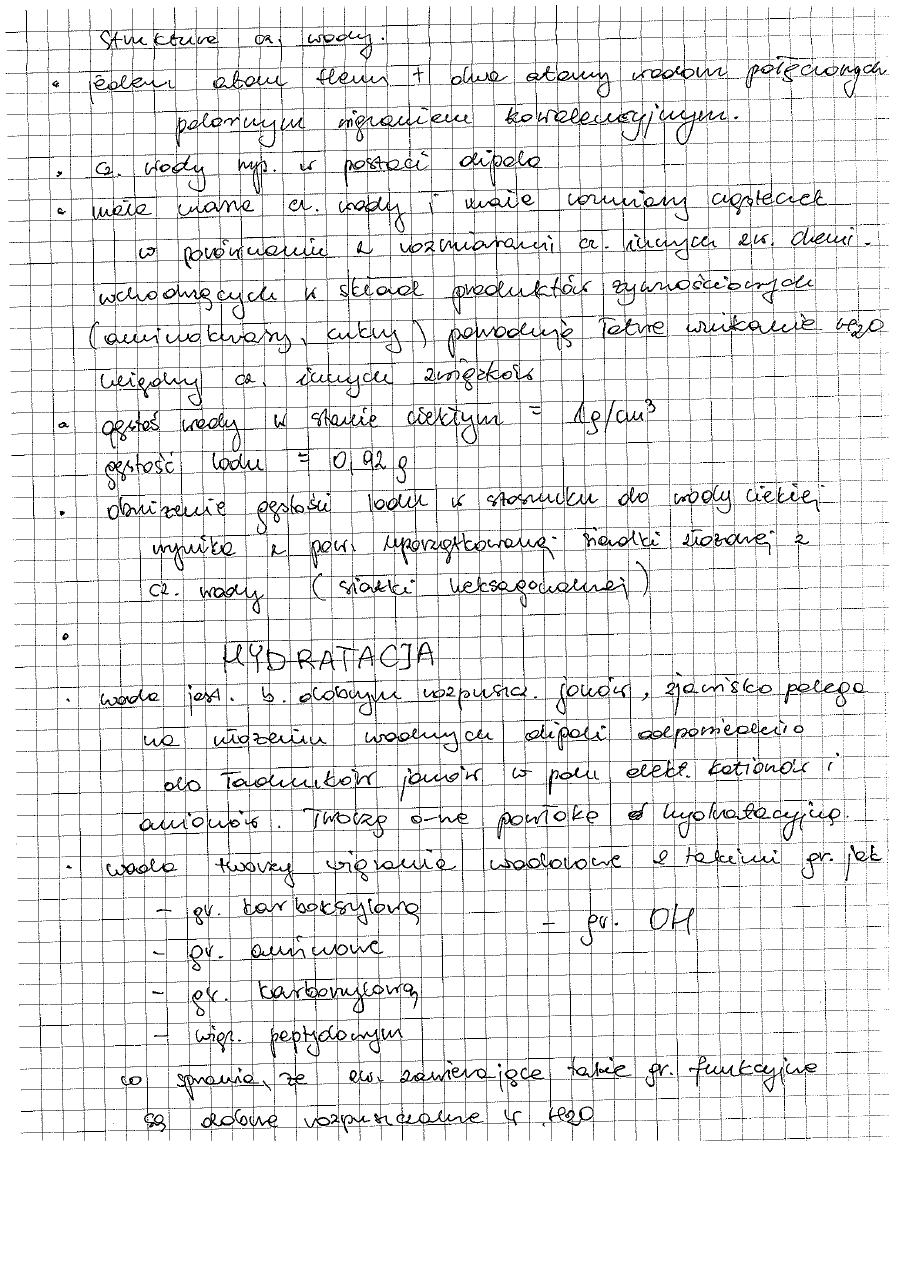 Struktura cz. wody.
• jeden atom tlenu + dwa atomy wodoru połączonych
polarnym wiązaniem kowalencyjnym.
• cz. wody wyp. w postaci dipola
• mała masa cz. wody i małe rozmiary cząsteczek
w porównaniu z rozmiarami cz. innych zw. chemi.
wchodzących w skład produktów żywnościowych
(aminokwasy, cukry) powodują łatwe wnikanie H2O
między cz. innych związków
• gęstoś wody w stanie ciekłym = 1g/cm³
gęstość lodu = 0,92 g
• obniżenie gęstości lodu w stosunku do wody ciekłej
wynika z pow. uporządkowanej siadki złożonej z
cz. wody (siatki heksagonalnej)
•
HYDRATACJA
• woda jest. b. dobrym rozpuszcz. jonów, zjawisko polega
na ułożeniu wodnych dipoli odpowiednio
do ładunków jonów w polu elekt. kationów i
anionów. Tworzą o-ne powłokę hydratacyjną.
• woda tworzy wiązania wodorowe z takimi gr. jak
- gr. karboksylową - gr. OH
- gr. aminowa
- gr. karbonylową
- wiąz. peptydowym
co sprawia, że zw. zawierające takie gr. funkcyjne
są dobrze rozpuszczalne w H2O